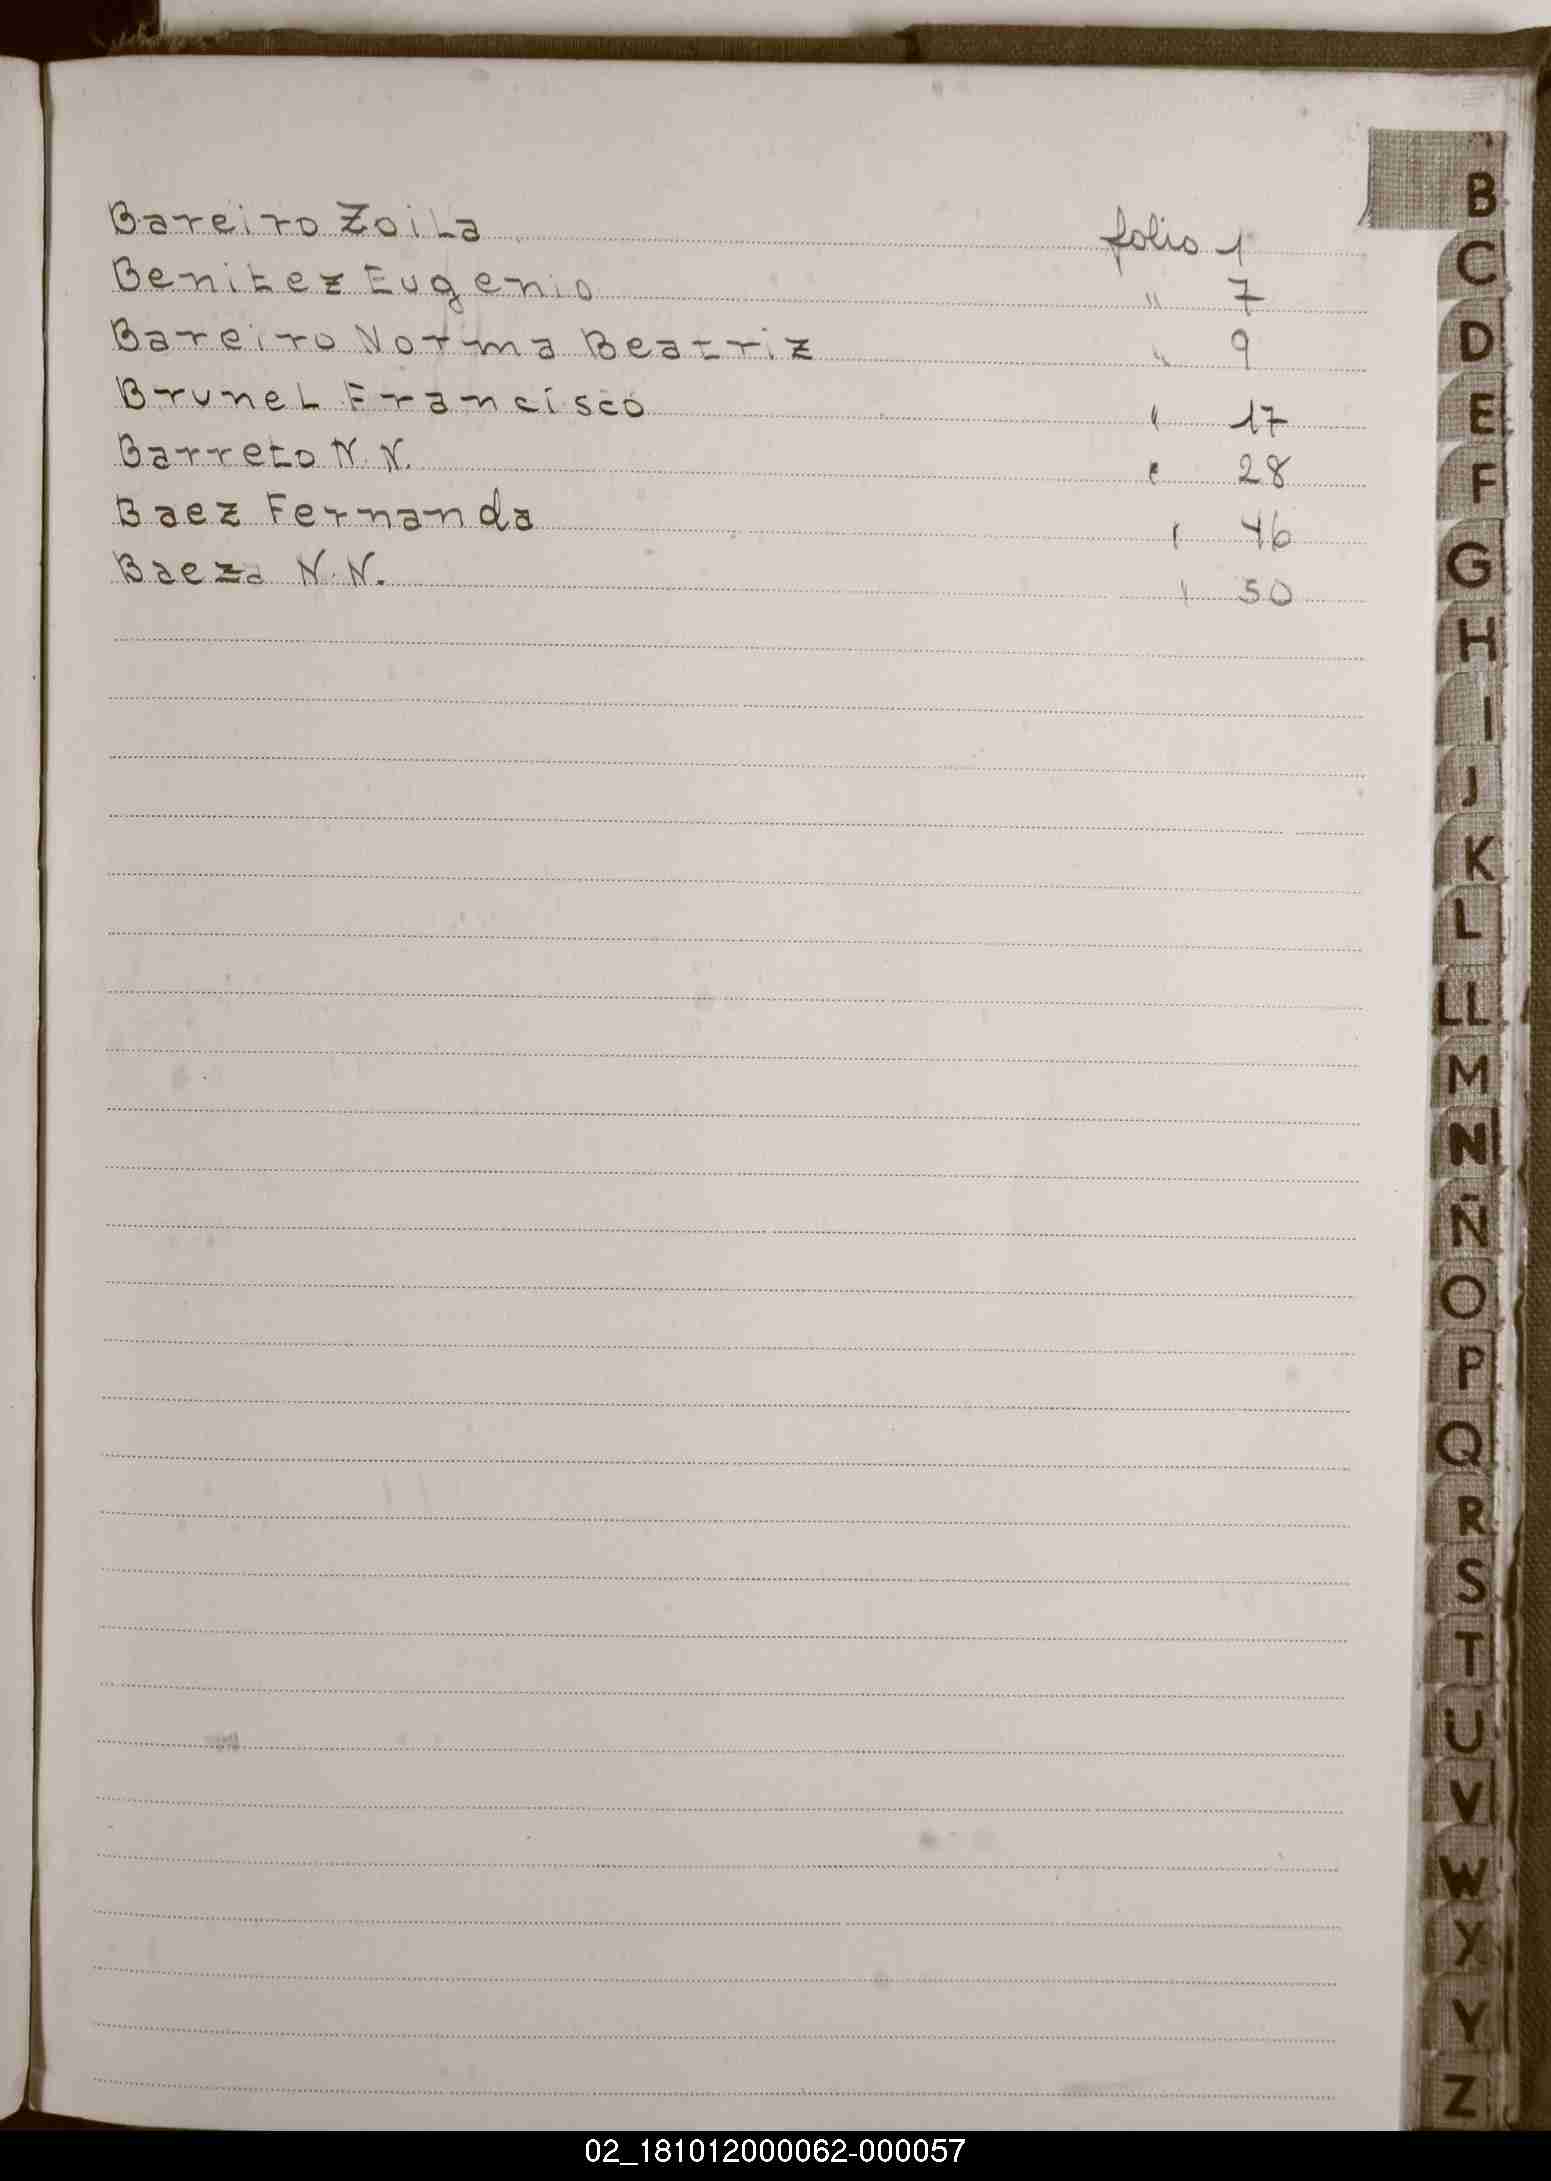 Bareiro Zoila folio 1
Benitez Eugenio " 7
Bareiro Norma Beatriz " 9
Brunel Francisco " 17
Barreto N.N. " 28
Baez Fernanda " 46
Baeza N.N. " 50
B
C
D
E
F
G
H
I
J
K
L
LL
M
N
Ñ
O
P
Q
R
S
T
U
V
W
X
Y
Z
02_181012000062-000057